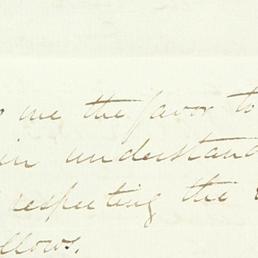 me the favor to
in understand
respecting the